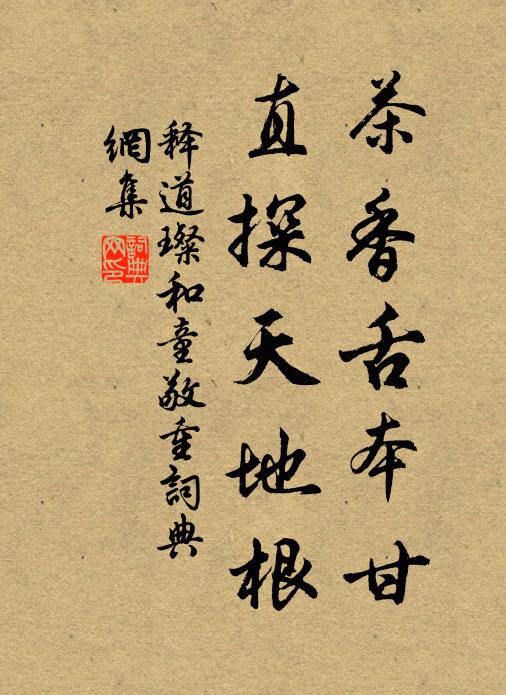 茶香舌本甘
直探天地根
释道璨和童敬重詞典
網集
詞典網印